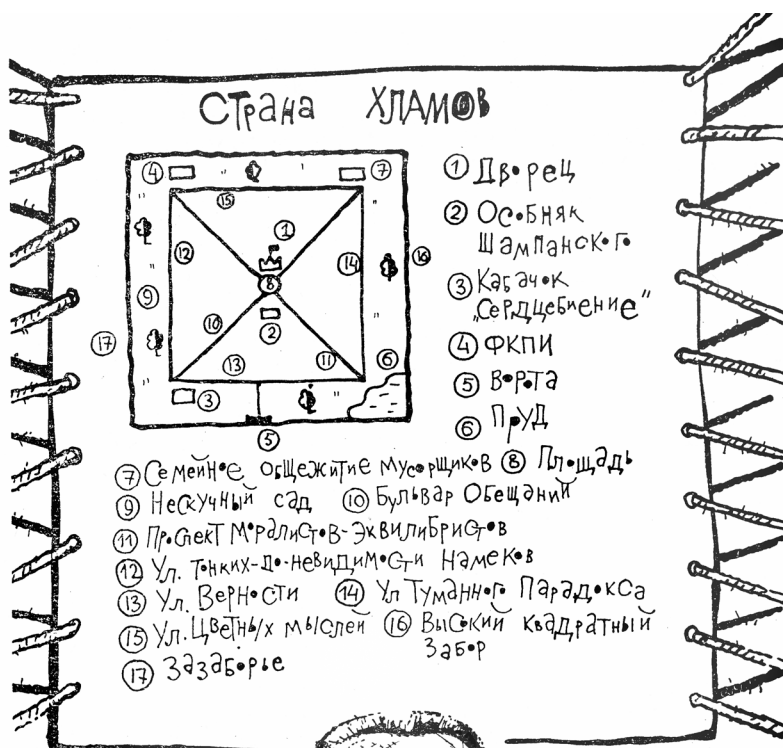 Страна Хламов
4 " " 7
15 "
1
12 14 16
8
9 "
10 2 "
17 6
13 11
" 3
5
1 Дворец
2 Особняк
Шампанского
3 Кабачок
„Сердцебиение"
4 ФКПИ
5 Ворота
6 Пруд
7 Семейное общежитие мусорщиков 8 Площадь
9 Нескучный сад 10 Бульвар Обещаний
11 Проспект Моралистов-эквилибристов
12 Ул. Тонких-до-невидимости Намеков
13 Ул. Верности 14 Ул Туманного Парадокса
15 Ул. Цветных мыслей 16 Высокий квадратный
Забор
17 Зазаборье